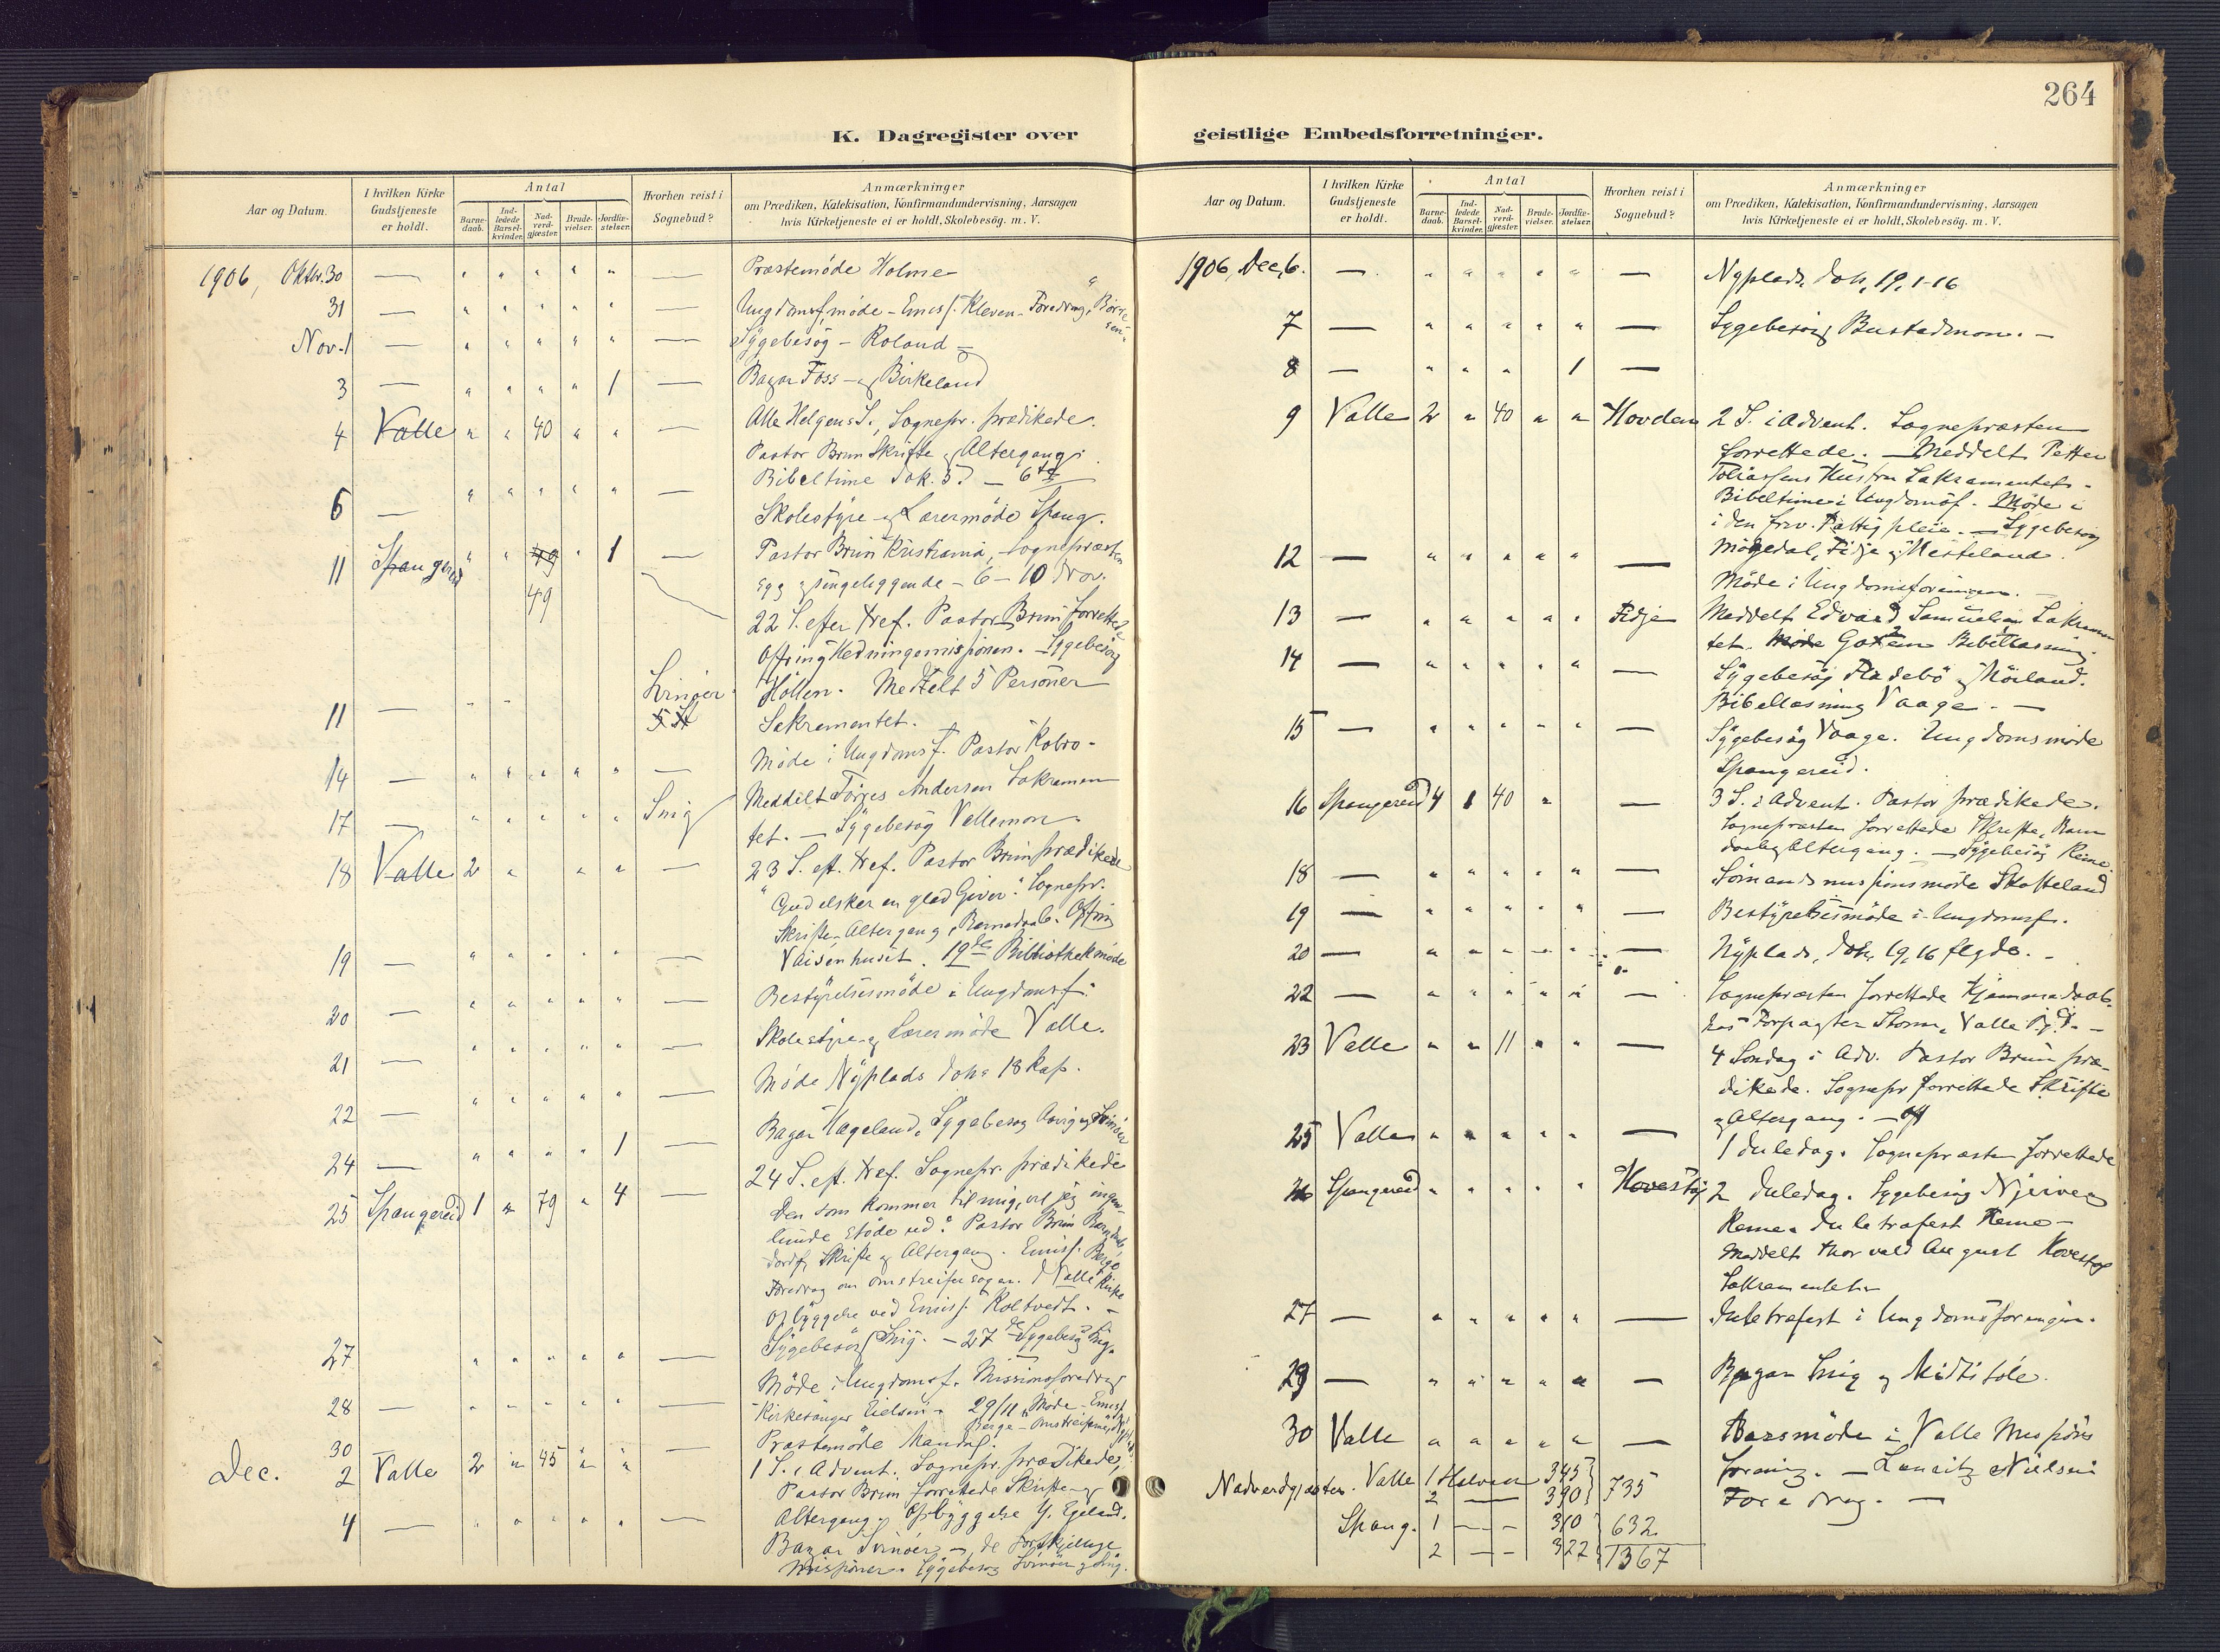 264
K. Dagregister over
geistlige Embedsforretninger.
Aar og Datum.
I hvilken Kirke Gudstjeneste er holdt.
Antal
Barnedaab.
Indledede Barselkvinder.
Nadverdgjæster.
Brudevielser.
Jordfæstelser.
Hvorhen reist i Sognebud?
Anmærkninger
om Prædiken, Katekisation, Konfirmandundervisning, Aarsagen
hvis Kirketjeneste ei er holdt, Skolebesög. m. V.
1906, Oktbr. 30 — " " " " " — Præstemöde Holme
31 — " " " " " — Ungdomsf. möde - Emiss. Kleven - Foredrag,
Nov. 1 — " " " " " — Sygebesög - Roland
3 — " " " " 1 — Bazar Foss - og Birkeland
4 Valle " " 40 " " — Alle Helgens S., Sognepr. prædikede.
Pastor Brun Skrifte og Altergang.
Bibeltime
6 — " " " " " — Skolestyre og Lærermöde Spang.
11 Spangereid " " 49 " 1 — Pastor Brun Kristiania, Sognepræsten
49
syg og sengeliggende - 6 - 10 Nov.
22 S. efter Tref. Pastor Brun forrettede
Offring Hedningemissionen. Sygebesög
11 — Svinöer Höllen. Meddelt 5 Personer
Sakramentet.
14 — " " " " " — Möde i Ungdomsf. Pastor
17 — " " " " " Snig Meddelt Andersen Sakramen
tet. — Sygebesög Vallemon
18 Valle 2 " " " — 23 S. eft. Tref. Pastor Brun prædikede
"Gud elsker en glad Giver." Sognepr.
Skrifte - Altergang, Barnedaab. Offring
Vaisenhuset. 19de Bibliothekmöde
19 — " " " " " — Bestyrelsesmöde i Ungdomsf.
20 — " " " " " — Skolestyre og Lærermöde Valle.
21 — " " " " " — Möde Nyplads Joh. 18 kap.
22 — " " " " " — Bazar Hageland, Sygebesög og Svinöer
24 — " " " " 1 — 24 S. eft. Tref. Sognepr. prædikede
25 Spangereid 1 " 79 " 4 — Den som kommer til mig, vil jeg ingen-
lunde stöde ud. Pastor Brun
Skrifte og Altergang. Emiss. Berge
Foredrag om omstreifersagen. I Valle Kirke
Opbyggelse ved Emiss. Koltvedt. -
Sygebesög Snig. - 27de Sygebesög Snig.
27 " " " " " — Möde i Ungdomsf. Missionsforedrag
28 — " " " " " — Kirkesanger Eielsen. 29/11 Möde - Emiss.
Berge -
30 — Præstemöde Mandal.
Dec. 2 Valle 2 " 45 " " 1 S. i Advent. Sognepr. prædikede,
Pastor Brun forrettede Skrifte og
Altergang. Opbyggelse Y. Egeland.
4 — " " " " " — Bazar Svinöer - de forskjellige
Missioner. Sygebesög Svinöer og Snig.
1906, Dec. 6. — " " " " " — Nyplads Joh. 19, 1-16
7 — " " " " " — Sygebesög Bustadmon. -
8 — " " " 1 —
9 Valle 2 " 40 " " Hovden 2 S. i Advent. Sognepræsten
forrettede. — Meddelt Petter
Tobiassens Hustru Sakramentet.
Bibeltime i Ungdomsf. Möde i
i den friv. Fattigpleie. — Sygebesög
12 — " " " " " — Mögedal, Fidje og Hesteland.
Möde i Ungdomsforeningen. -
13 — " " " " " Fidje Meddelt Edvard Samuelsen Sakramen
tet. Bibellæsning.
14 — " " " " " — Sygebesög Fladebö og Möiland.
Bibellæsning Vaage. -
15 — " " " " " — Sygebesög Vaage. Ungdomsmöde
Spangereid.
16 Spangereid 4 1 40 " — 3 S. i Advent. Pastor prædikede.
Sognepræsten forrettede Skrifte, Barne
daab og Altergang. — Sygebesög Reme
18 — " " " " " — Sömandsmissionsmöde Skofteland
19 — " " " " " — Bestyrelsesmöde i Ungdomsf.
20 — " " " " " — Nyplads, Joh. 19, 16 flgde. -
22 — " " " " " — Sognepræsten forrettede Hjemmedaab
hos Forpagter Storm, Valle Pgd. -
23 Valle " " 11 " " — 4 Söndag i Adv. Pastor Brun præ-
dikede. Sognepr forrettede Skrifte
og Altergang. —
25 Valle " " " " " — 1 Juledag. Sognepræsten forrettede
26 Spangereid " " " " " Hovestög 2 Juledag. Sygebesög Njerve og
Reme. Juletræfest Reme -
Meddelt Thorvald August Hovestög
Sakramentet
27 — " " " " " — Juletræfest i Ungdomsforeningen.
29 — " " " " " — Bazar Snig og Midtböle.
30 Valle " " " " " — Aarsmöde i Valle Missions
forening. — Lauritz Nielsen
Foredrag. —
Nadverdgjæster. Valle 1 Halvaar 345 } 735
2 — 390
Spang. 1 — - 310 } 632
2 — - 322 1367